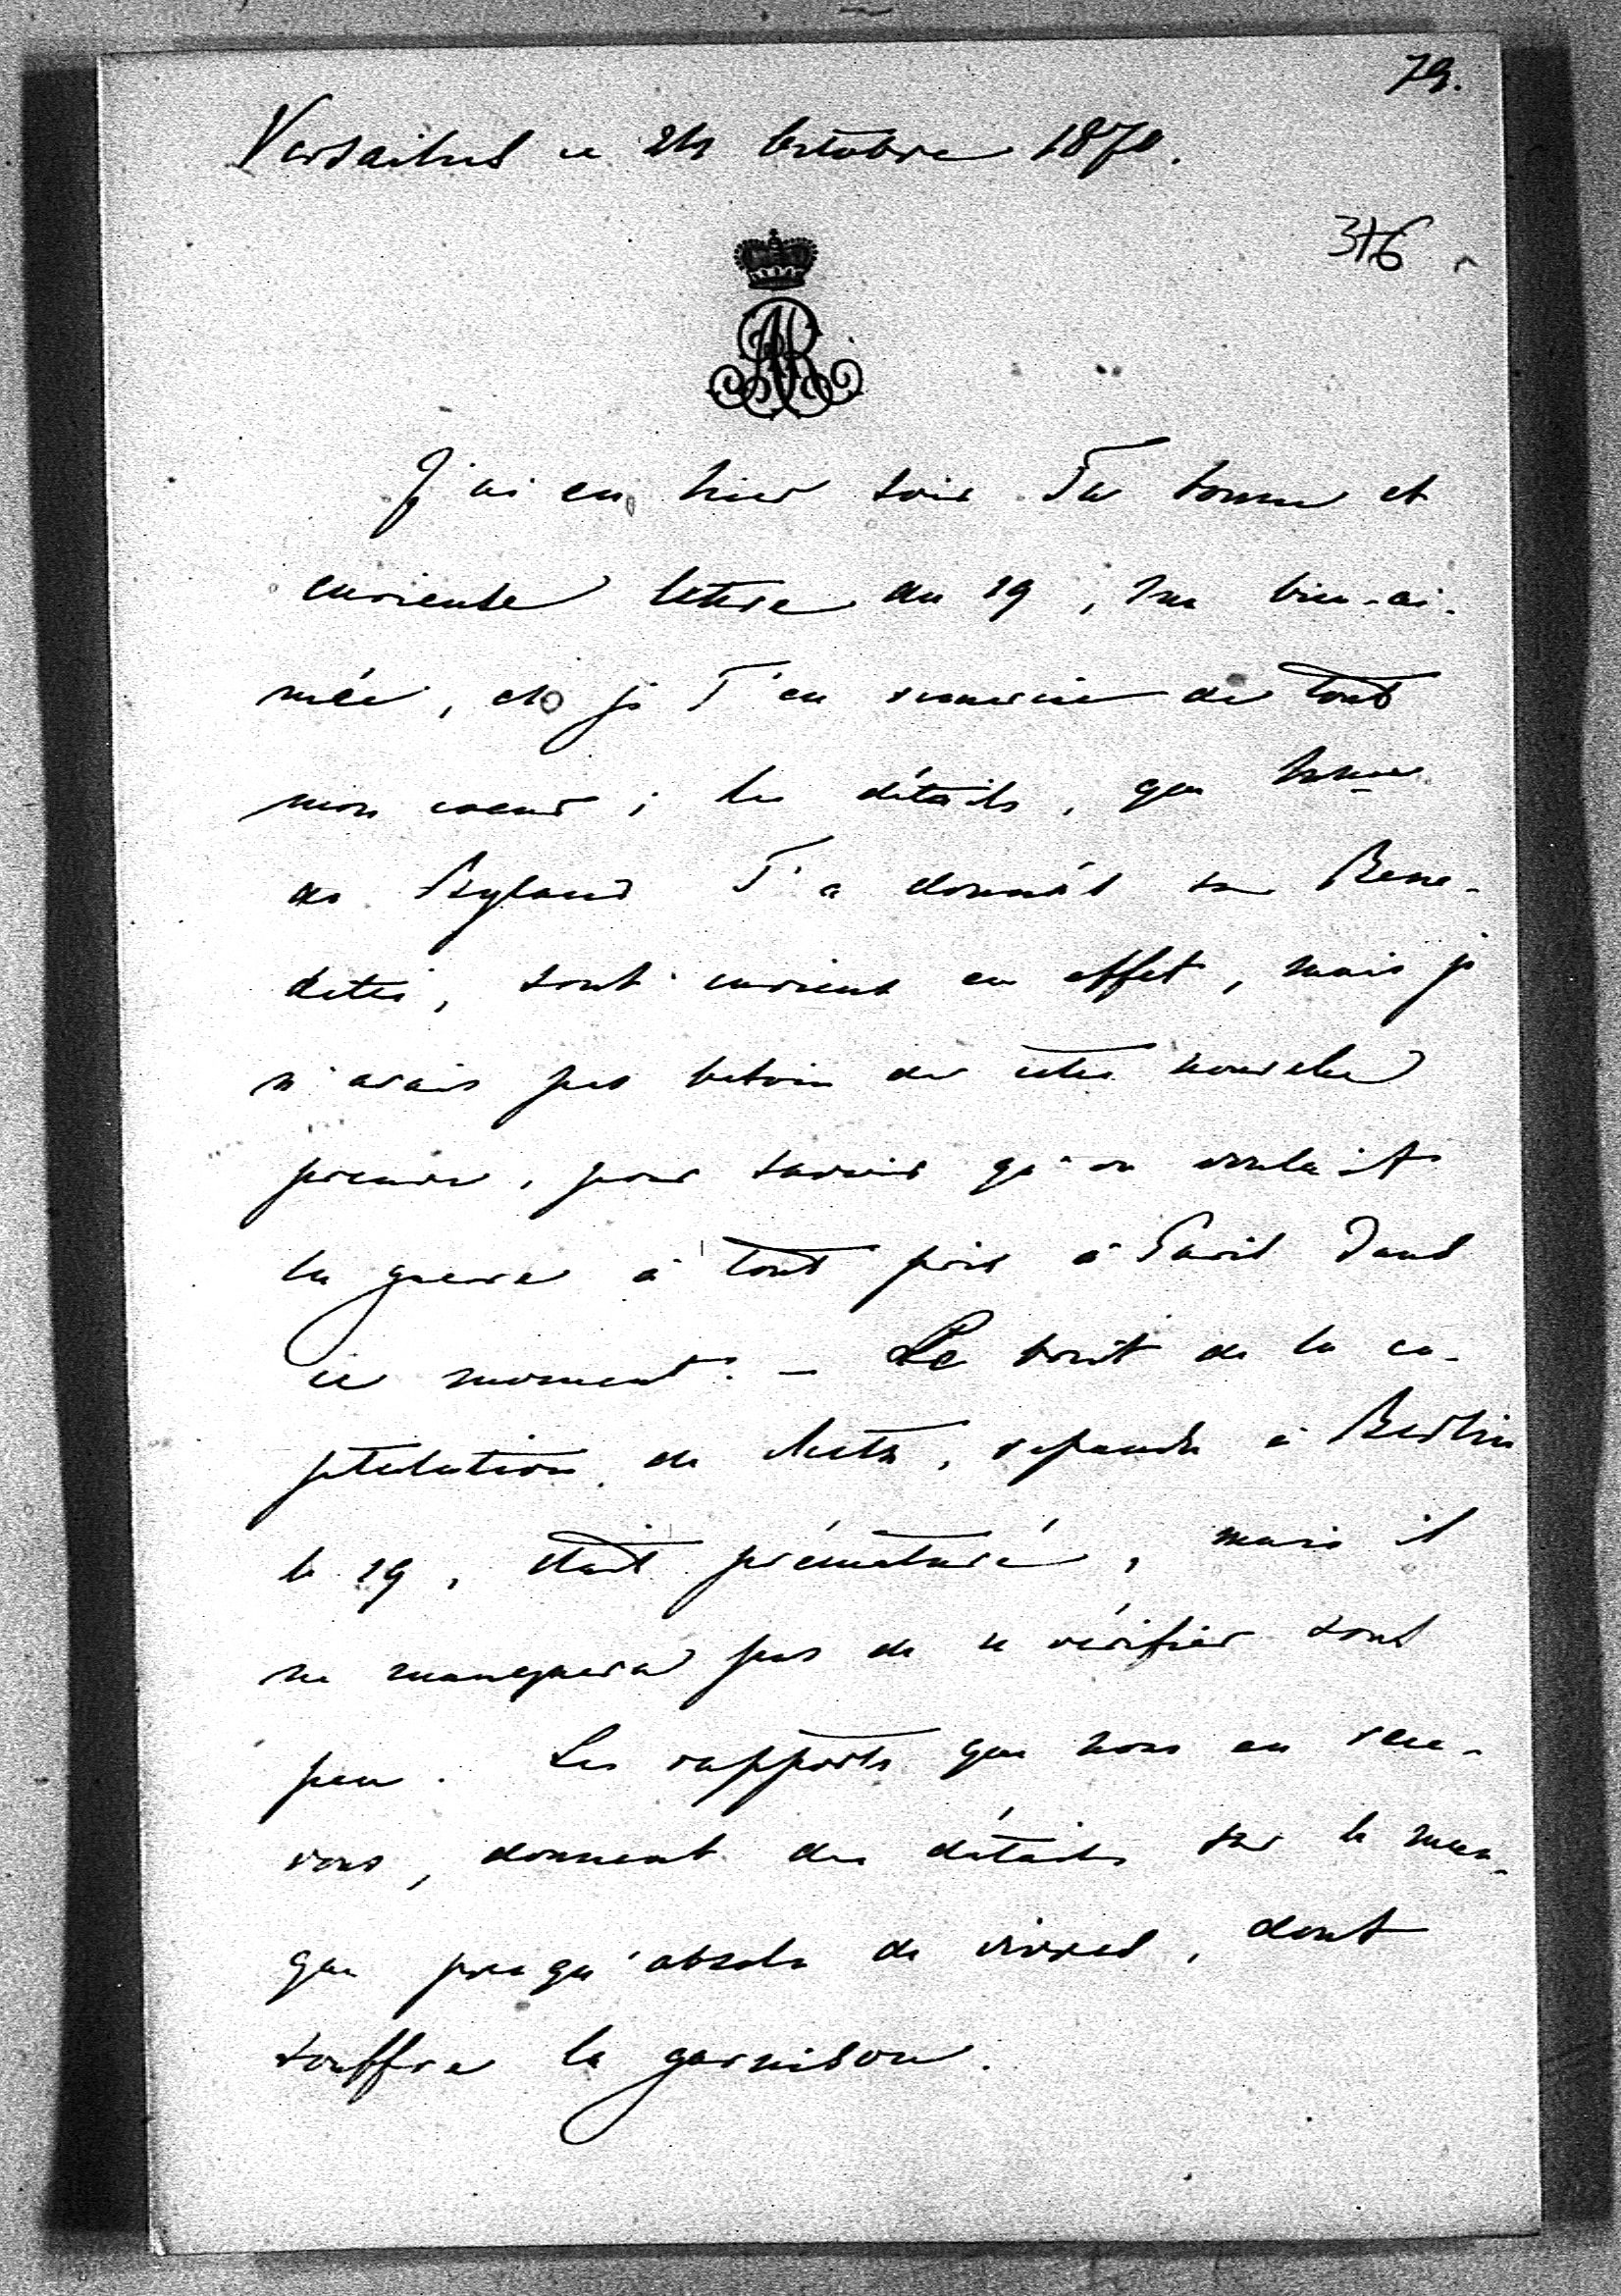 79.
Versailles ce 24 Octobre 1870.
376
AR
J'ai eu hier soir Ta bonne et
curieuse lettre du 19, ma bien-ai-
mée, et je T'en remercie de tout
mon coeur; les détails, que Mme
de Byland T'a donnés sur Bene-
detti, sont curieux en effet, mais je
n'avais pas besoin de cette nouvelle
preuve, pour savoir qu'on voulait
la guerre à tout prix à Paris dans
ce moment. - Le bruit de la ca-
pitulation de Metz, repandu à Berlin
le 19, était prématuré, mais il
ne manquera pas de se vérifier sous
peu. Les rapports que nous en rece-
vons, donnent des détails sur le man-
que presqu'absolu de vivres, dont
souffre la garnison.